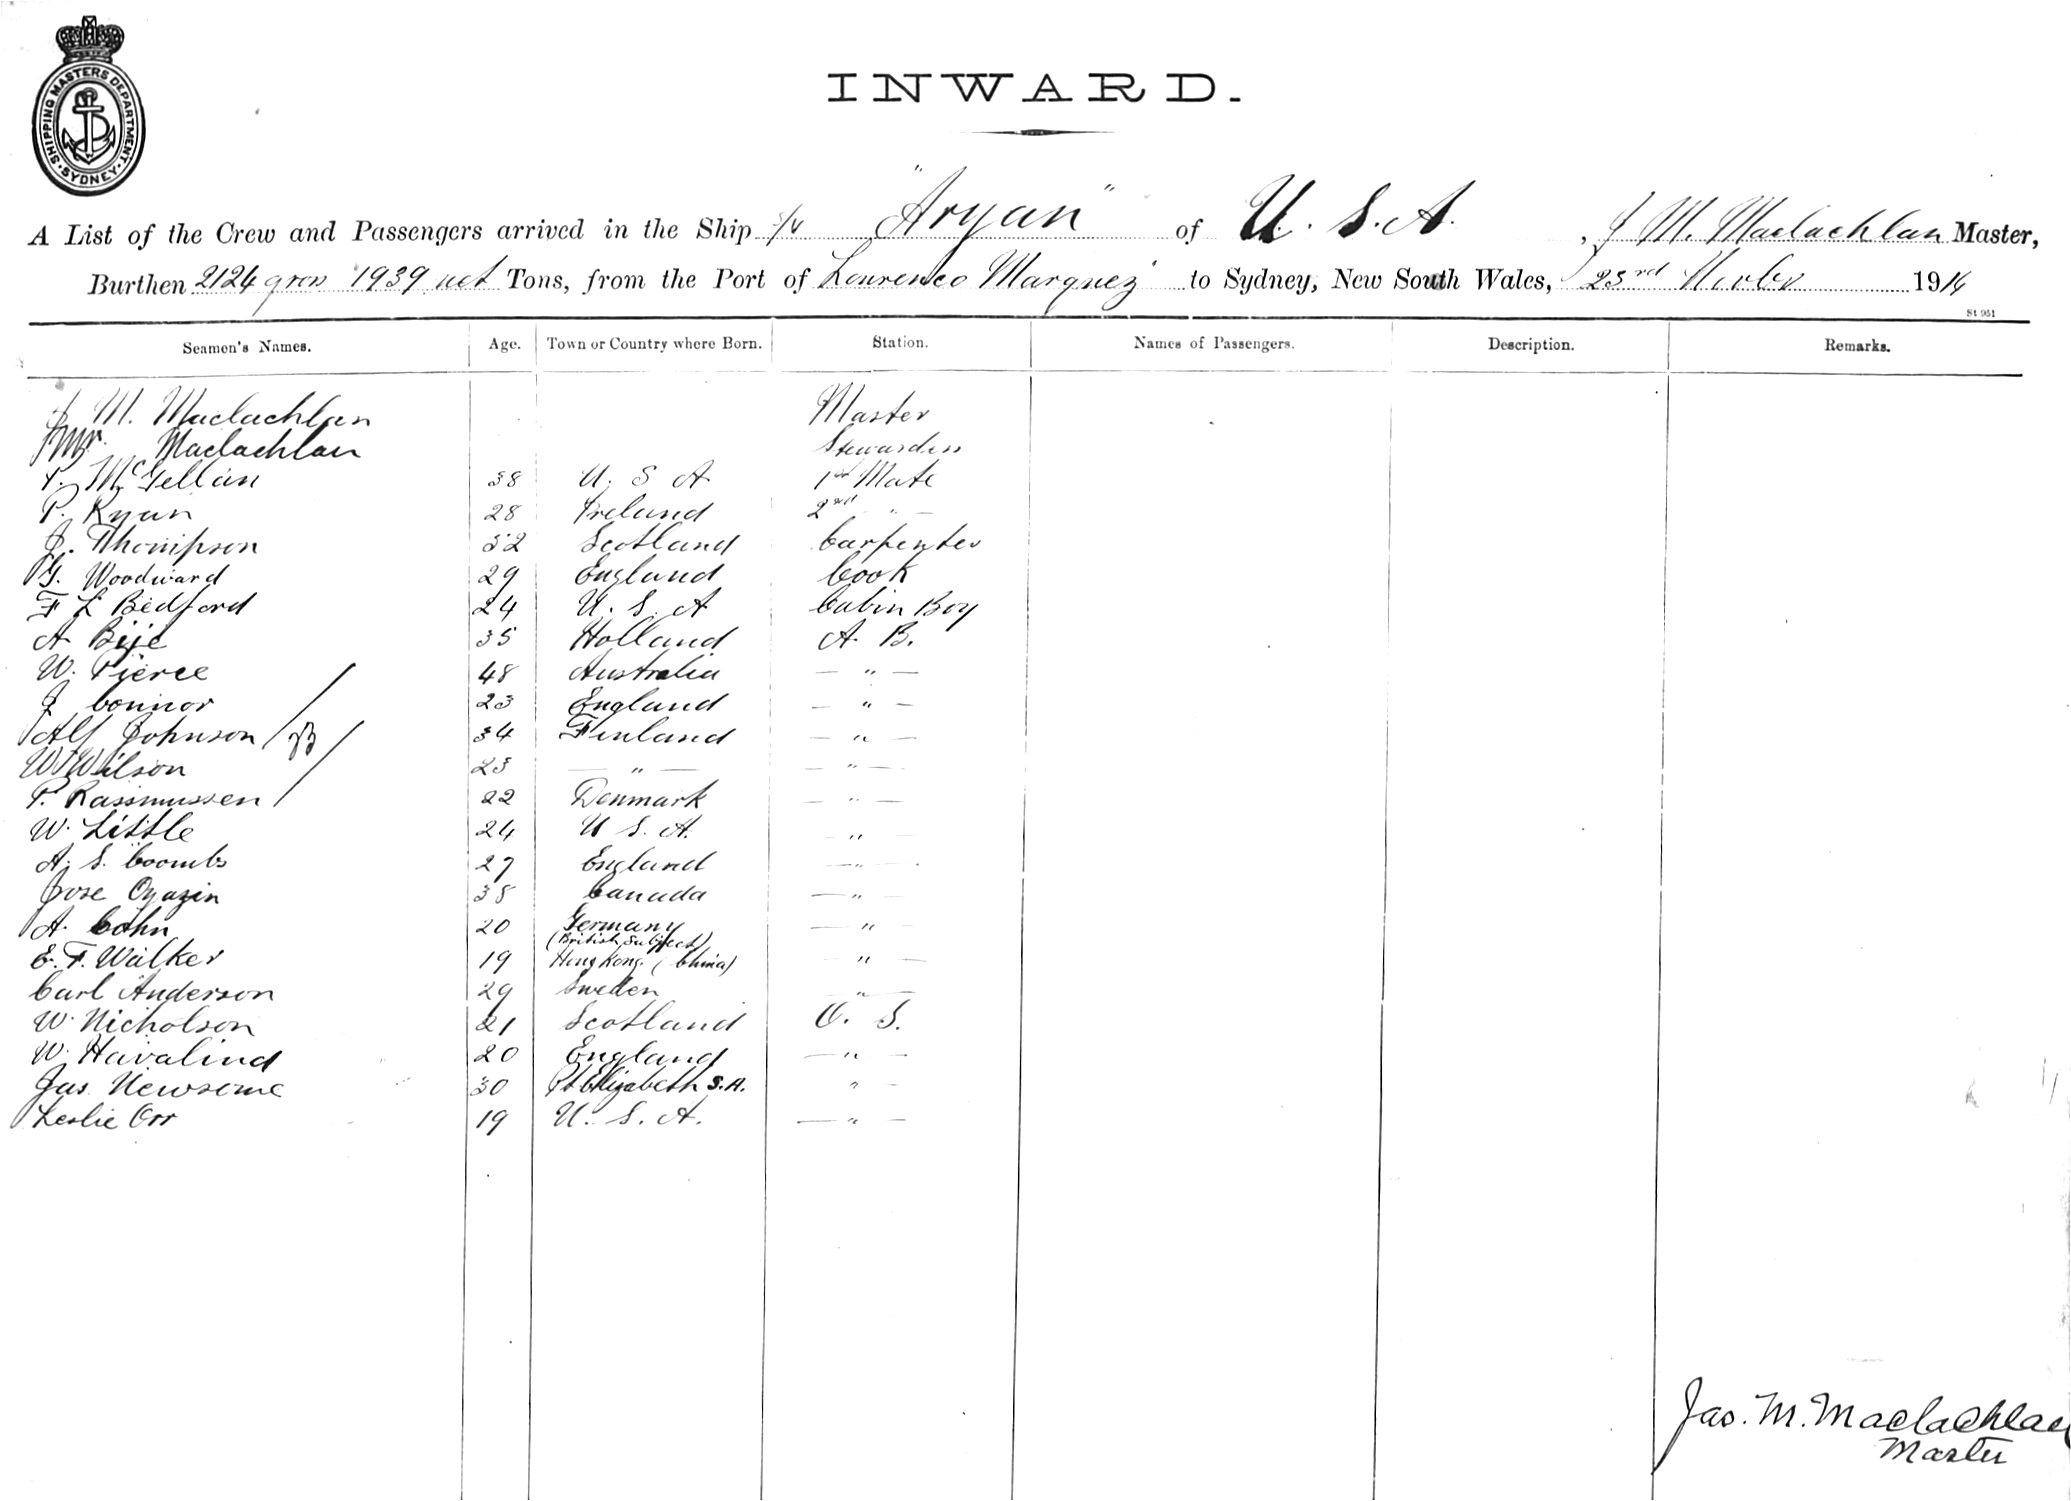 SHIPPING MASTERS DEPARTMENT
SYDNEY
INWARD.
A List of the Crew and Passengers arrived in the Ship s/v "Aryan" of U. S. A. , J M. Maclachlan Master,
Burthen 2124 gross 1939 net Tons, from the Port of Lourenco Marquez to Sydney, New South Wales, 23rd Novbr 1914
St 951
Seamen's Names. Age. Town or Country where Born. Station. Names of Passengers. Description. Remarks.
J M. Maclachlan Master
Mrs. Maclachlan Stewardess
38 U. S A 1st Mate
P. Ryan 28 Ireland 2nd "
J. Thompson 52 Scotland Carpenter
G. Woodward 29 England Cook
F L Bedford 24 U. S. A Cabin Boy
A Bije 35 Holland A. B.
W. Pierce 48 Australia — " —
J Connor 23 England — " —
Alf Johnson 34 Finland — " —
W Wilson 23 — " — — " —
P. Rassmussen 22 Denmark — " —
W. Little 24 U S. A. — " —
A. S. Coombs 27 England — " —
Jose Oyazin 38 Canada — " —
A. Cohn 20 Germany — " —
(British Subject)
E. F. Walker 19 Hong Kong. (China) — " —
Carl Anderson 29 Sweden — " —
W. Nicholson 21 Scotland O. S.
W. Havalind 20 England — " —
Jas Newsome 30 Pt Elizabeth S.A. " —
Leslie Orr 19 U. S. A. — " —
Jas. M. Maclachlan
Master